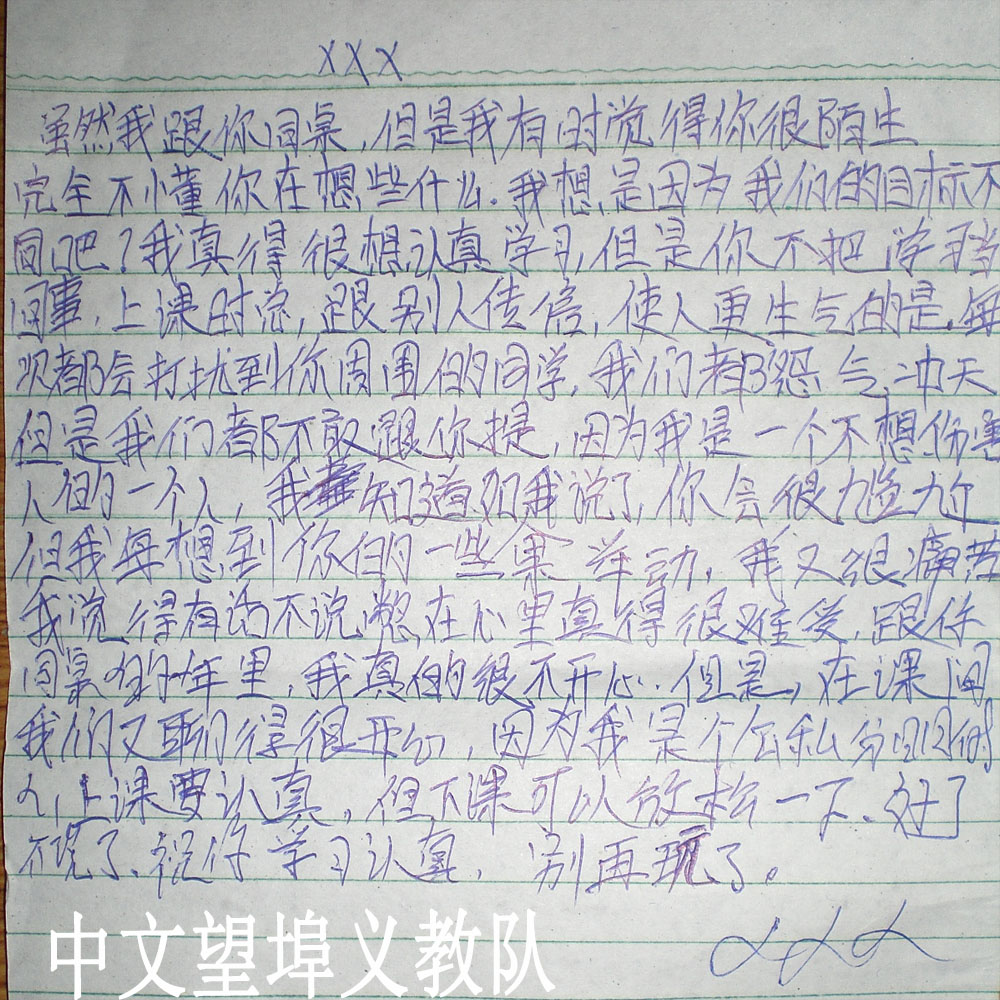 XXX
虽然我跟你同桌,但是我有时觉得你很陌生
完全不懂你在想些什么.我想是因为我们的目标不
同吧?我真得很想认真学习,但是你不把学习当
回事,上课时总,跟别人传信,使人更生气的是,每
次都会打扰到你周围的同学,我们都怨气冲天
但是我们都不敢跟你提,因为我是一个不想伤害
人的一个人,我知道如我说了,你会很尴尬
但我每想到你的一些举动,我又很痛苦
我觉得有话不说憋在心里真得很难受,跟你
同桌的年里,我真的很不开心.但是,在课间
我们又聊得很开心,因为我是个公私分明的
人,上课要认真,但下课可以放松一下、好了
不说了、祝你学习认真,别再玩了。
XXX
中文望埠义教队